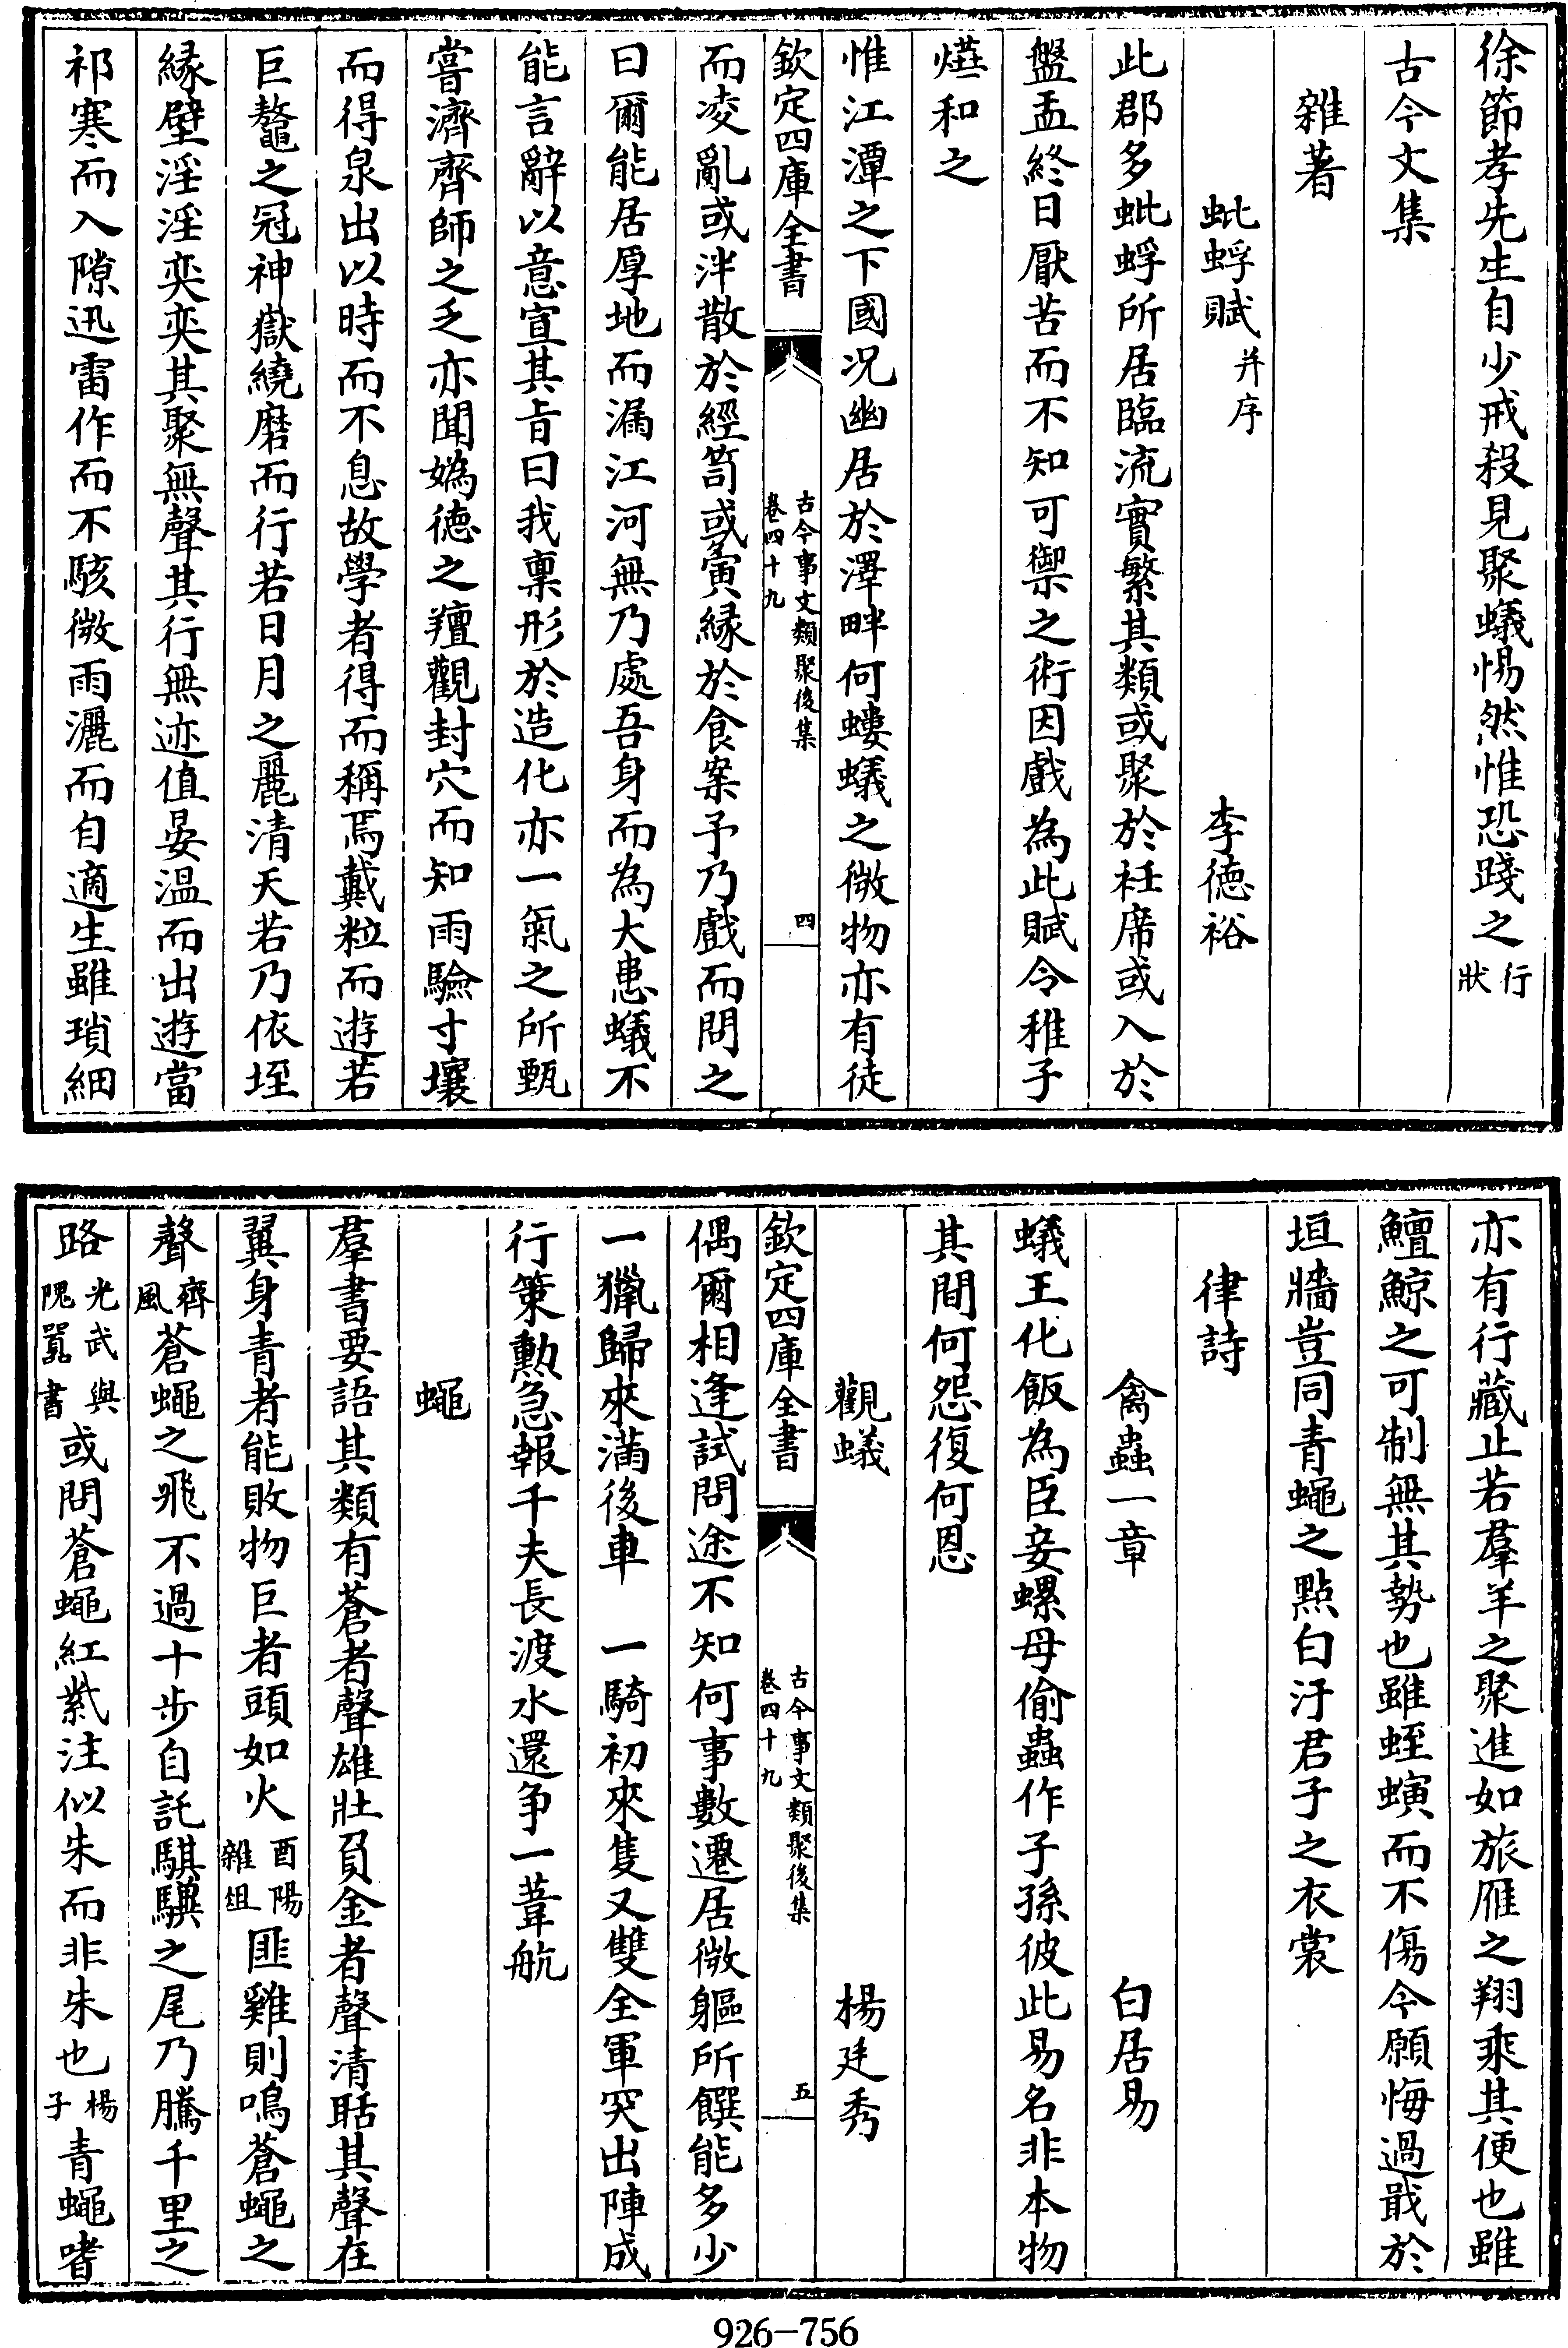 徐節孝先生自少戒殺見聚蟻惕然惟恐踐之行狀
古今文集
雜著
蚍蜉賦并序　李德裕
此郡多蚍蜉所居臨流實繁其類或聚於衽席或入於
盤盂終日厭苦而不知可禦之術因戲為此賦令稚子
㷼和之
惟江潭之下國况幽居於澤畔何螻蟻之微物亦有徒
欽定四庫全書
古今事文類聚後集
卷四十九
四
而凌亂或泮散於經笥或夤緣於食案予乃戲而問之
曰爾能居厚地而漏江河無乃處吾身而為大患蟻不
能言辭以意宣其旨曰我稟形於造化亦一氣之所甄
嘗濟齊師之乏亦聞媯徳之羶觀封穴而知雨驗寸壤
而得泉出以時而不息故學者得而稱焉戴粒而遊若
巨鼇之冠神嶽繞磨而行若日月之麗清天若乃依垤
緣壁淫淫奕奕其聚無聲其行無迹值晏温而出遊當
祁寒而入隙迅雷作而不駭微雨灑而自適生雖瑣細
亦有行藏止若羣羊之聚進如旅雁之翔乘其便也雖
鱣鯨之可制無其勢也雖蛭螾而不傷今願悔過戢於
垣牆豈同青蠅之點白汙君子之衣裳
律詩
禽蟲一章　白居易
蟻王化飯為臣妾螺母偷蟲作子孫彼此易名非本物
其間何怨復何恩
觀蟻　楊廷秀
欽定四庫全書
古今事文類聚後集
卷四十九
五
偶爾相逢試問途不知何事數遷居微軀所饌能多少
一獵歸來滿後車　一騎初來隻又雙全軍突出陣成
行策勲急報千夫長渡水還争一葦航
蠅
羣書要語其類有蒼者聲雄壯負金者聲清聒其聲在
翼身青者能敗物巨者頭如火酉陽雜俎匪雞則鳴蒼蠅之
聲齊風蒼蠅之飛不過十步自託騏驥之尾乃騰千里之
路光武與隗囂書或問蒼蠅紅紫注似朱而非朱也楊子青蠅嗜
926-756